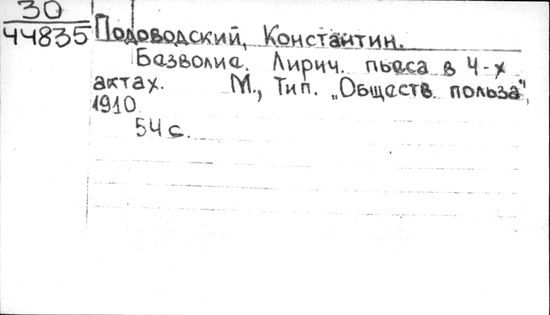 30
44835
Подоводский, Константин.
Базволие. Лирич. пьеса в 4-х
актах. М., Тип. „Обществ. польза",
1910
54 с.